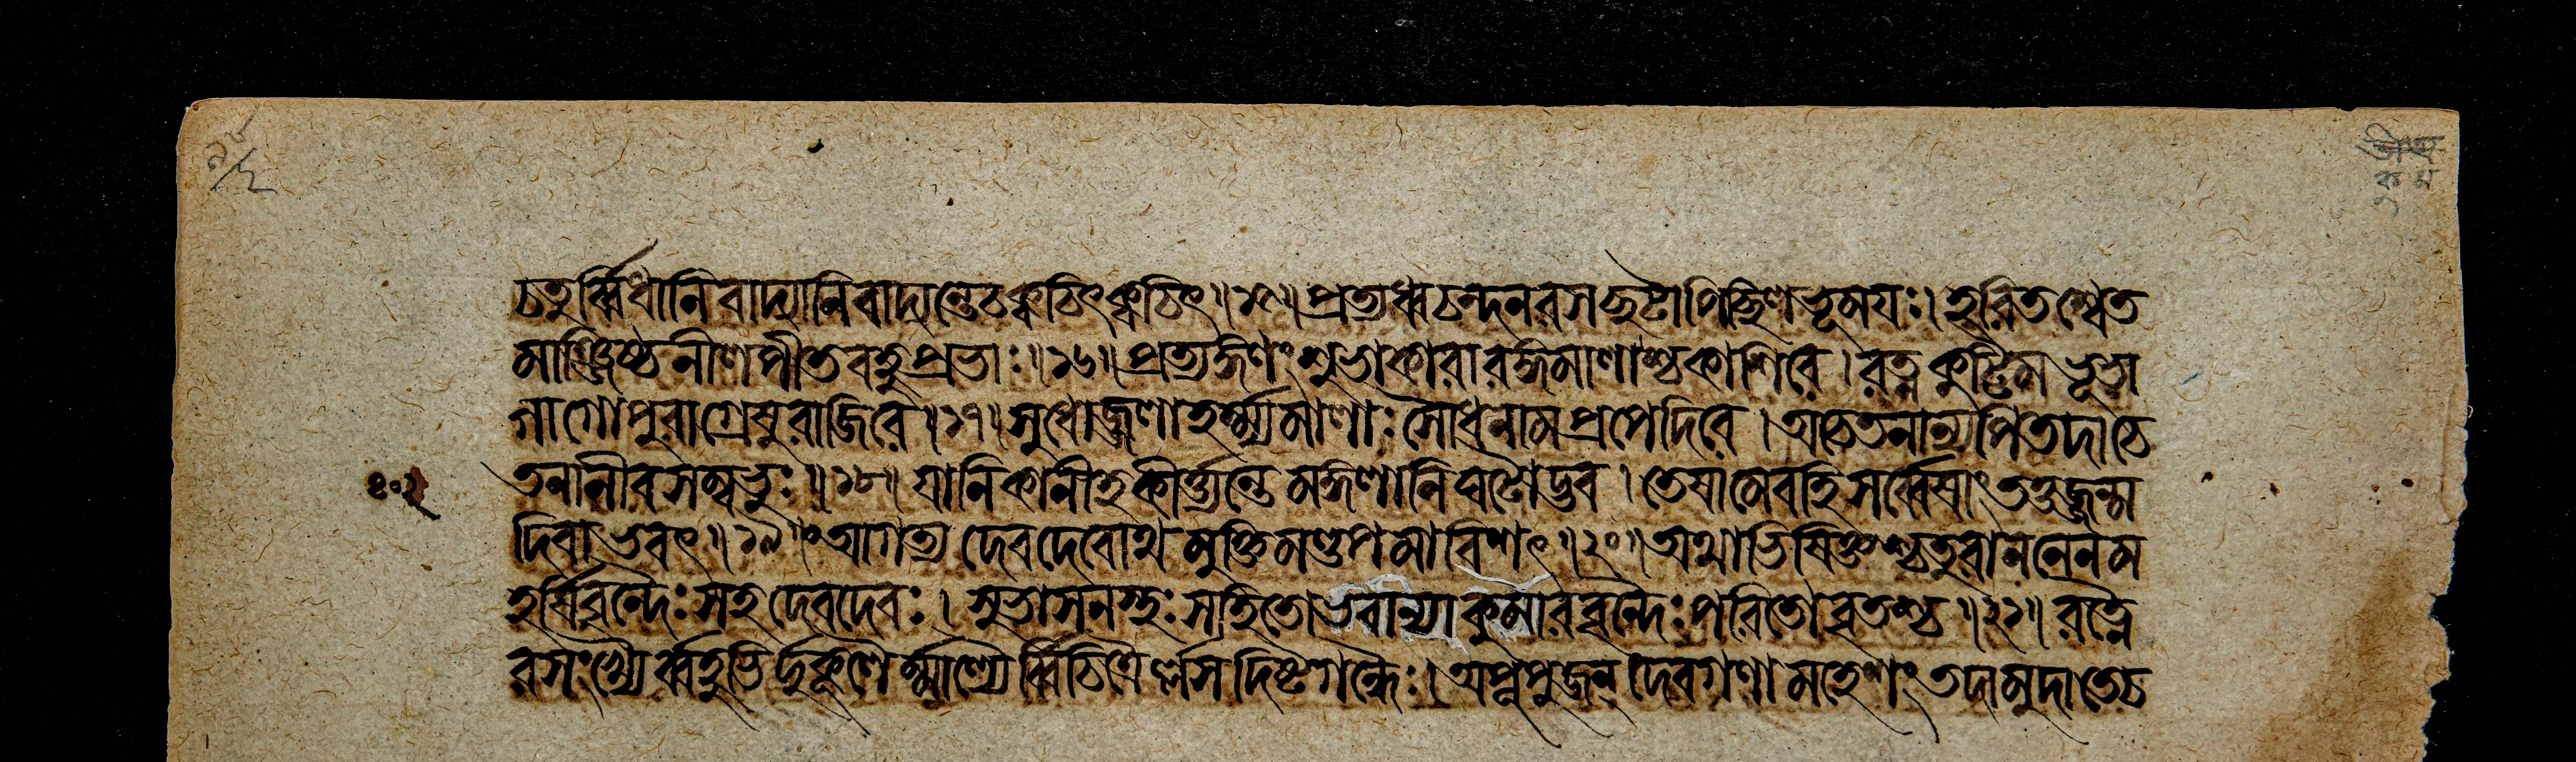 চতুর্ব্বিধানিবাদ্যানিবাদ্যন্তেচক্বচিৎক্বচিৎ॥১৫॥প্রত্যধ্বচন্দনরসচ্ছটাপিচ্ছিলভূময়ঃ।হরিতশ্বেত
মাঞ্জিষ্ঠনীলপীতবহুপ্রভাঃ॥১৬॥প্রত্যঙ্গণংশুভাকারারঙ্গমালাশ্চকাশিরে।রত্নকুট্টিমভূভা
গাগোপুরাগ্রেষুরাজিরে॥১৭॥সুধোজ্জ্বলাহর্ম্ম্যমালাঃসৌধনামপ্রপেদিরে।অচেতনান্যপিতদাচে
১০২ তনানীবসম্বভুঃ॥১৮॥যানিকানীহকীর্ত্ত্যন্তেমঙ্গলানিঘটোদ্ভব।তেষামেবহিসর্ব্বেষাংতত্তজ্জন্ম
দিবাভবৎ॥১৯॥আগত্যদেবদেবোথমুক্তিমণ্ডপমাবিশৎ॥২০॥অথাভিষিক্তশ্চতুরাননেনম
হর্ষিবৃন্দৈঃসহদেবদেবঃ।শুভাসনস্থঃসহিতোভবান্যাকুমারবৃন্দৈঃপরিতোবৃতশ্চ॥২১॥রত্নৈ
রসংখ্যৈর্ব্বহুভির্দুকূলৈর্ম্মাল্যৈর্ব্বিচিত্রৈর্লসদিষ্টগন্ধৈঃ।অপূপুজন্দেবগণামহেশংতদামুদাতেচ